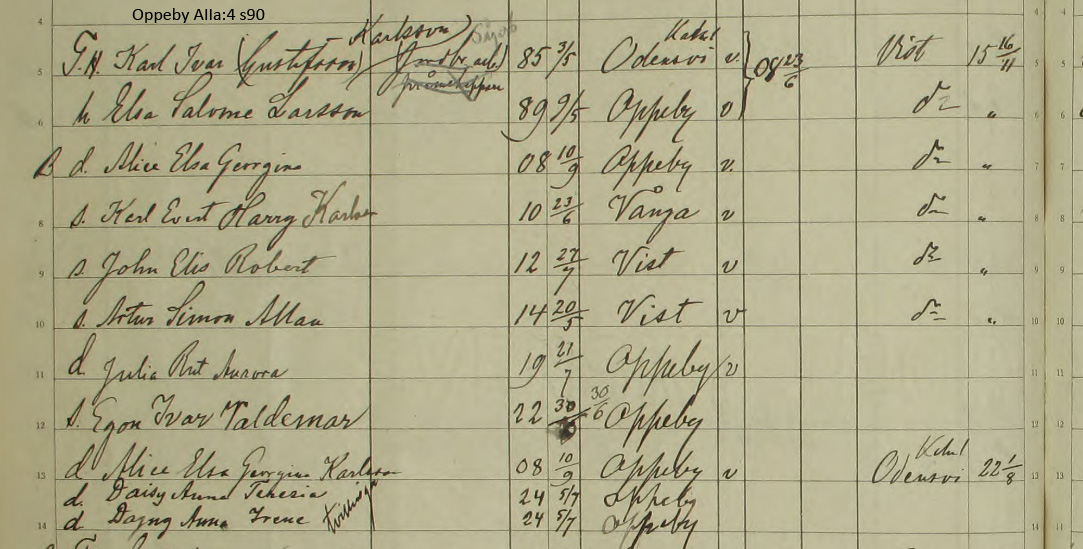 Oppeby Alla:4 s90
Karlsson)
F.H. Karl Ivar (Gustafsson) 85 3/5 Odensvi Kalm v. } 08 23/6 Vist 15 16/11
h Elsa Salome Larsson 89 9/5 Oppeby v d:o "
B d. Alice Elsa Georgina 08 10/9 Oppeby v. d:o "
s. Karl Evert Harry Karlsson 10 23/6 Vånga v d:o "
s. John Elis Robert 12 27/7 Vist v d:o "
s. Artur Simon Allan 14 20/5 Vist v d:o "
d. Julia Brit Aurora 19 21/7 Oppeby v
s. Egon Ivar Valdemar 22 30 30/6 Oppeby
d Alice Elsa Georgina Karlsson 08 10/9 Oppeby v Odensvi 22 1/8
d. Daisy Anna Teresia 24 5/7 Oppeby
d Dagny Anna Irene tvillingar 24 5/7 Oppeby
4
5
6
7
8
9
10
11
12
13
14